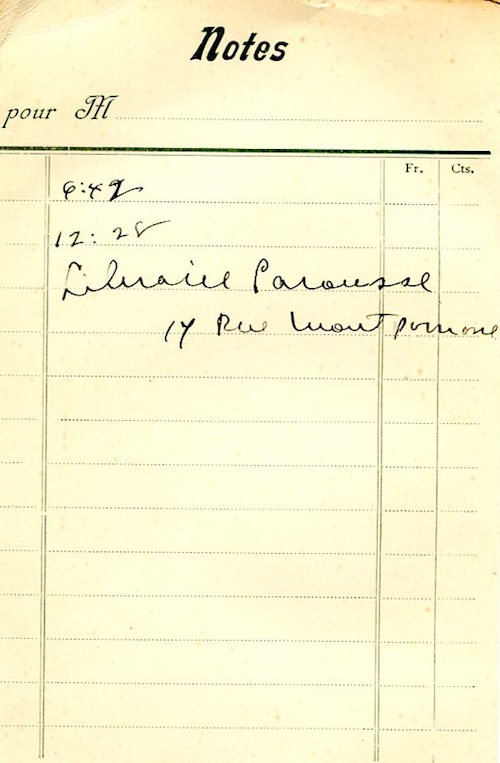 Notes
pour M
Fr. Cts.
6:42
12:28
Librairie Larousse
17 Rue Montparnasse